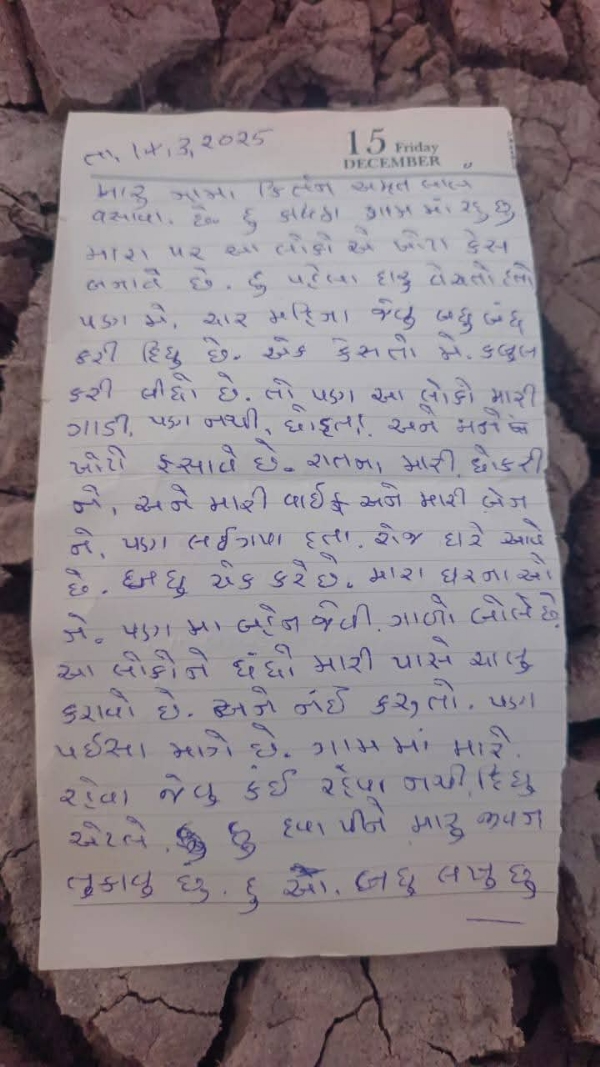 તા, 14,3,2025
15 Friday
DECEMBER
મારૂ નામ અમૃત લાલ
વસાવા. છે હુ ગ્રામ માં રહુ છુ
મારા પર આ લોકો એ ખોટા કેસ
બનાવે છે. હુ પહેલા દારૂ વેચતો હતો
પણ મે, ચાર મહિના જેવુ બધુ બંધ
કરી દિધુ છે. એક કેસતો મે. કબુલ
કરી લીધો છે. તો પણ આ લોકો મારી
ગાડી, પણ નથી, છોડતા! અને મને
ખોટો ફસાવે છે. રાતના, મારી, છોકરી
ને, અને મારી વાઈફ અને મારી બેન
ને, પણ લઈગયા હતા. રોજ ઘરે આવે
છે. બધુ ચેક કરે છે. મારા ઘરના ઓ
ને. પણ મા બહેન જેવી. ગાળો બોલે છે.
આ લોકોને ધંધો મારી પાસે ચાલુ
કરાવો છે. અને નંઈ કરૂતો. પણ
પઈસા માગે છે. ગામ માં મારે.
રહેવા જેવુ કંઈ રહેવા નથી, દિધુ
એટલે. હુ દવા પીને મારૂ જીવન
ટુકાવુ છુ. હુ આ. બધુ લખુ છુ